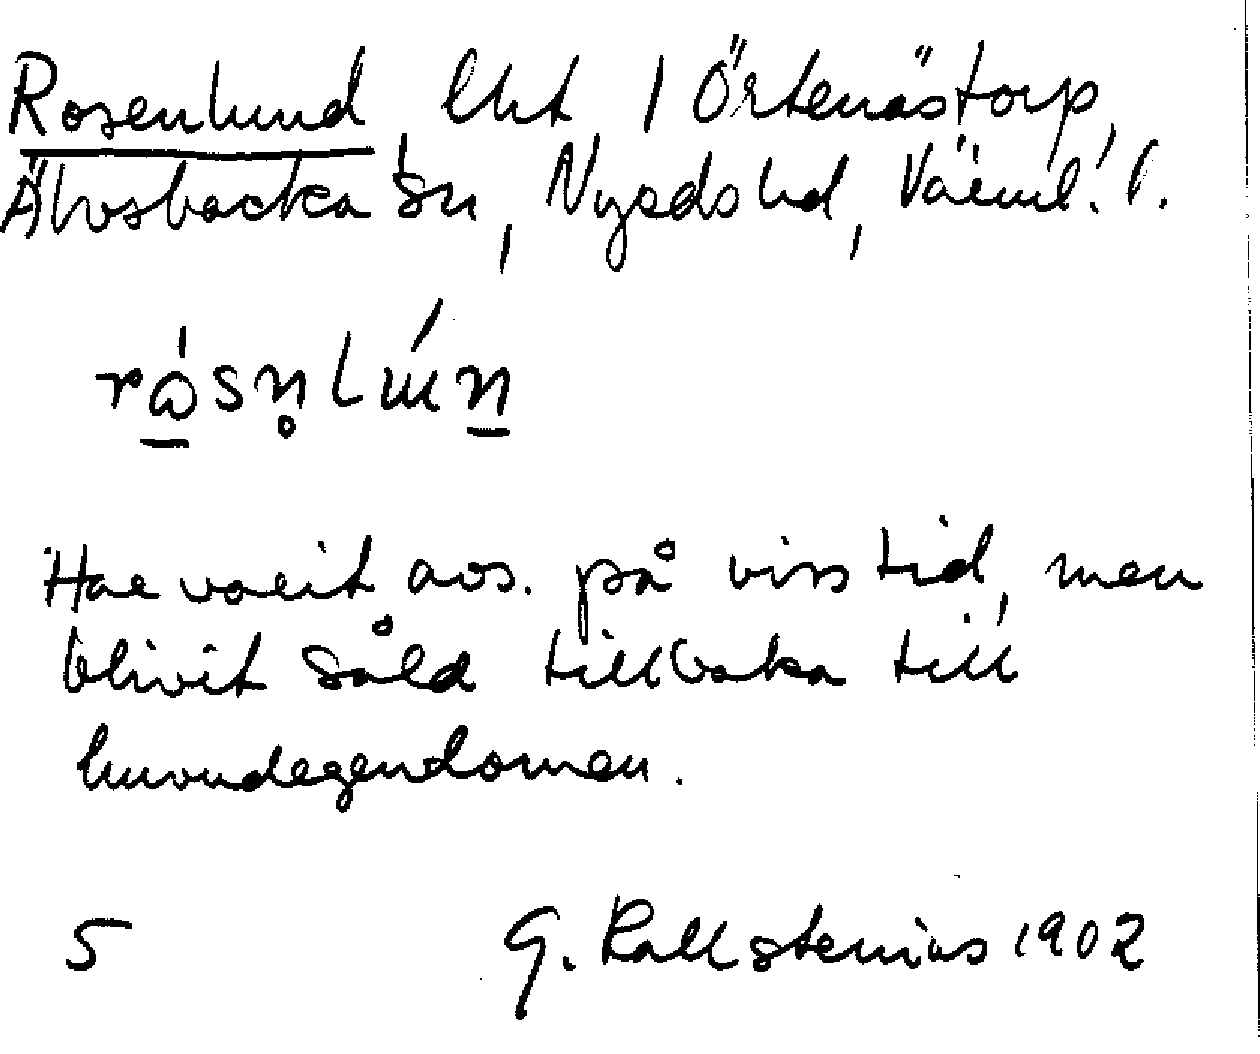 Rosenlund, lht, 1 Örtenästorp,
Älvsbacka sn, Nyeds hd, Värml. l.
rósn̥lún
Har varit avs. på viss tid, men
blivit såld tillbaka till
huvudegendomen.
5 G. Kallstenius 1902